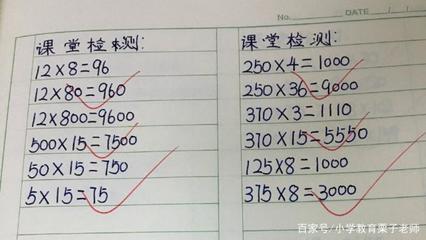 No.
DATE / /
课堂检测:
12×8=96
12×80=960
12×800=9600
500×15=7500
50×15=750
5×15=75
课堂检测:
250×4=1000
250×36=9000
370×3=1110
370×15=5550
125×8=1000
375×8=3000
百家号/小学教育栗子老师